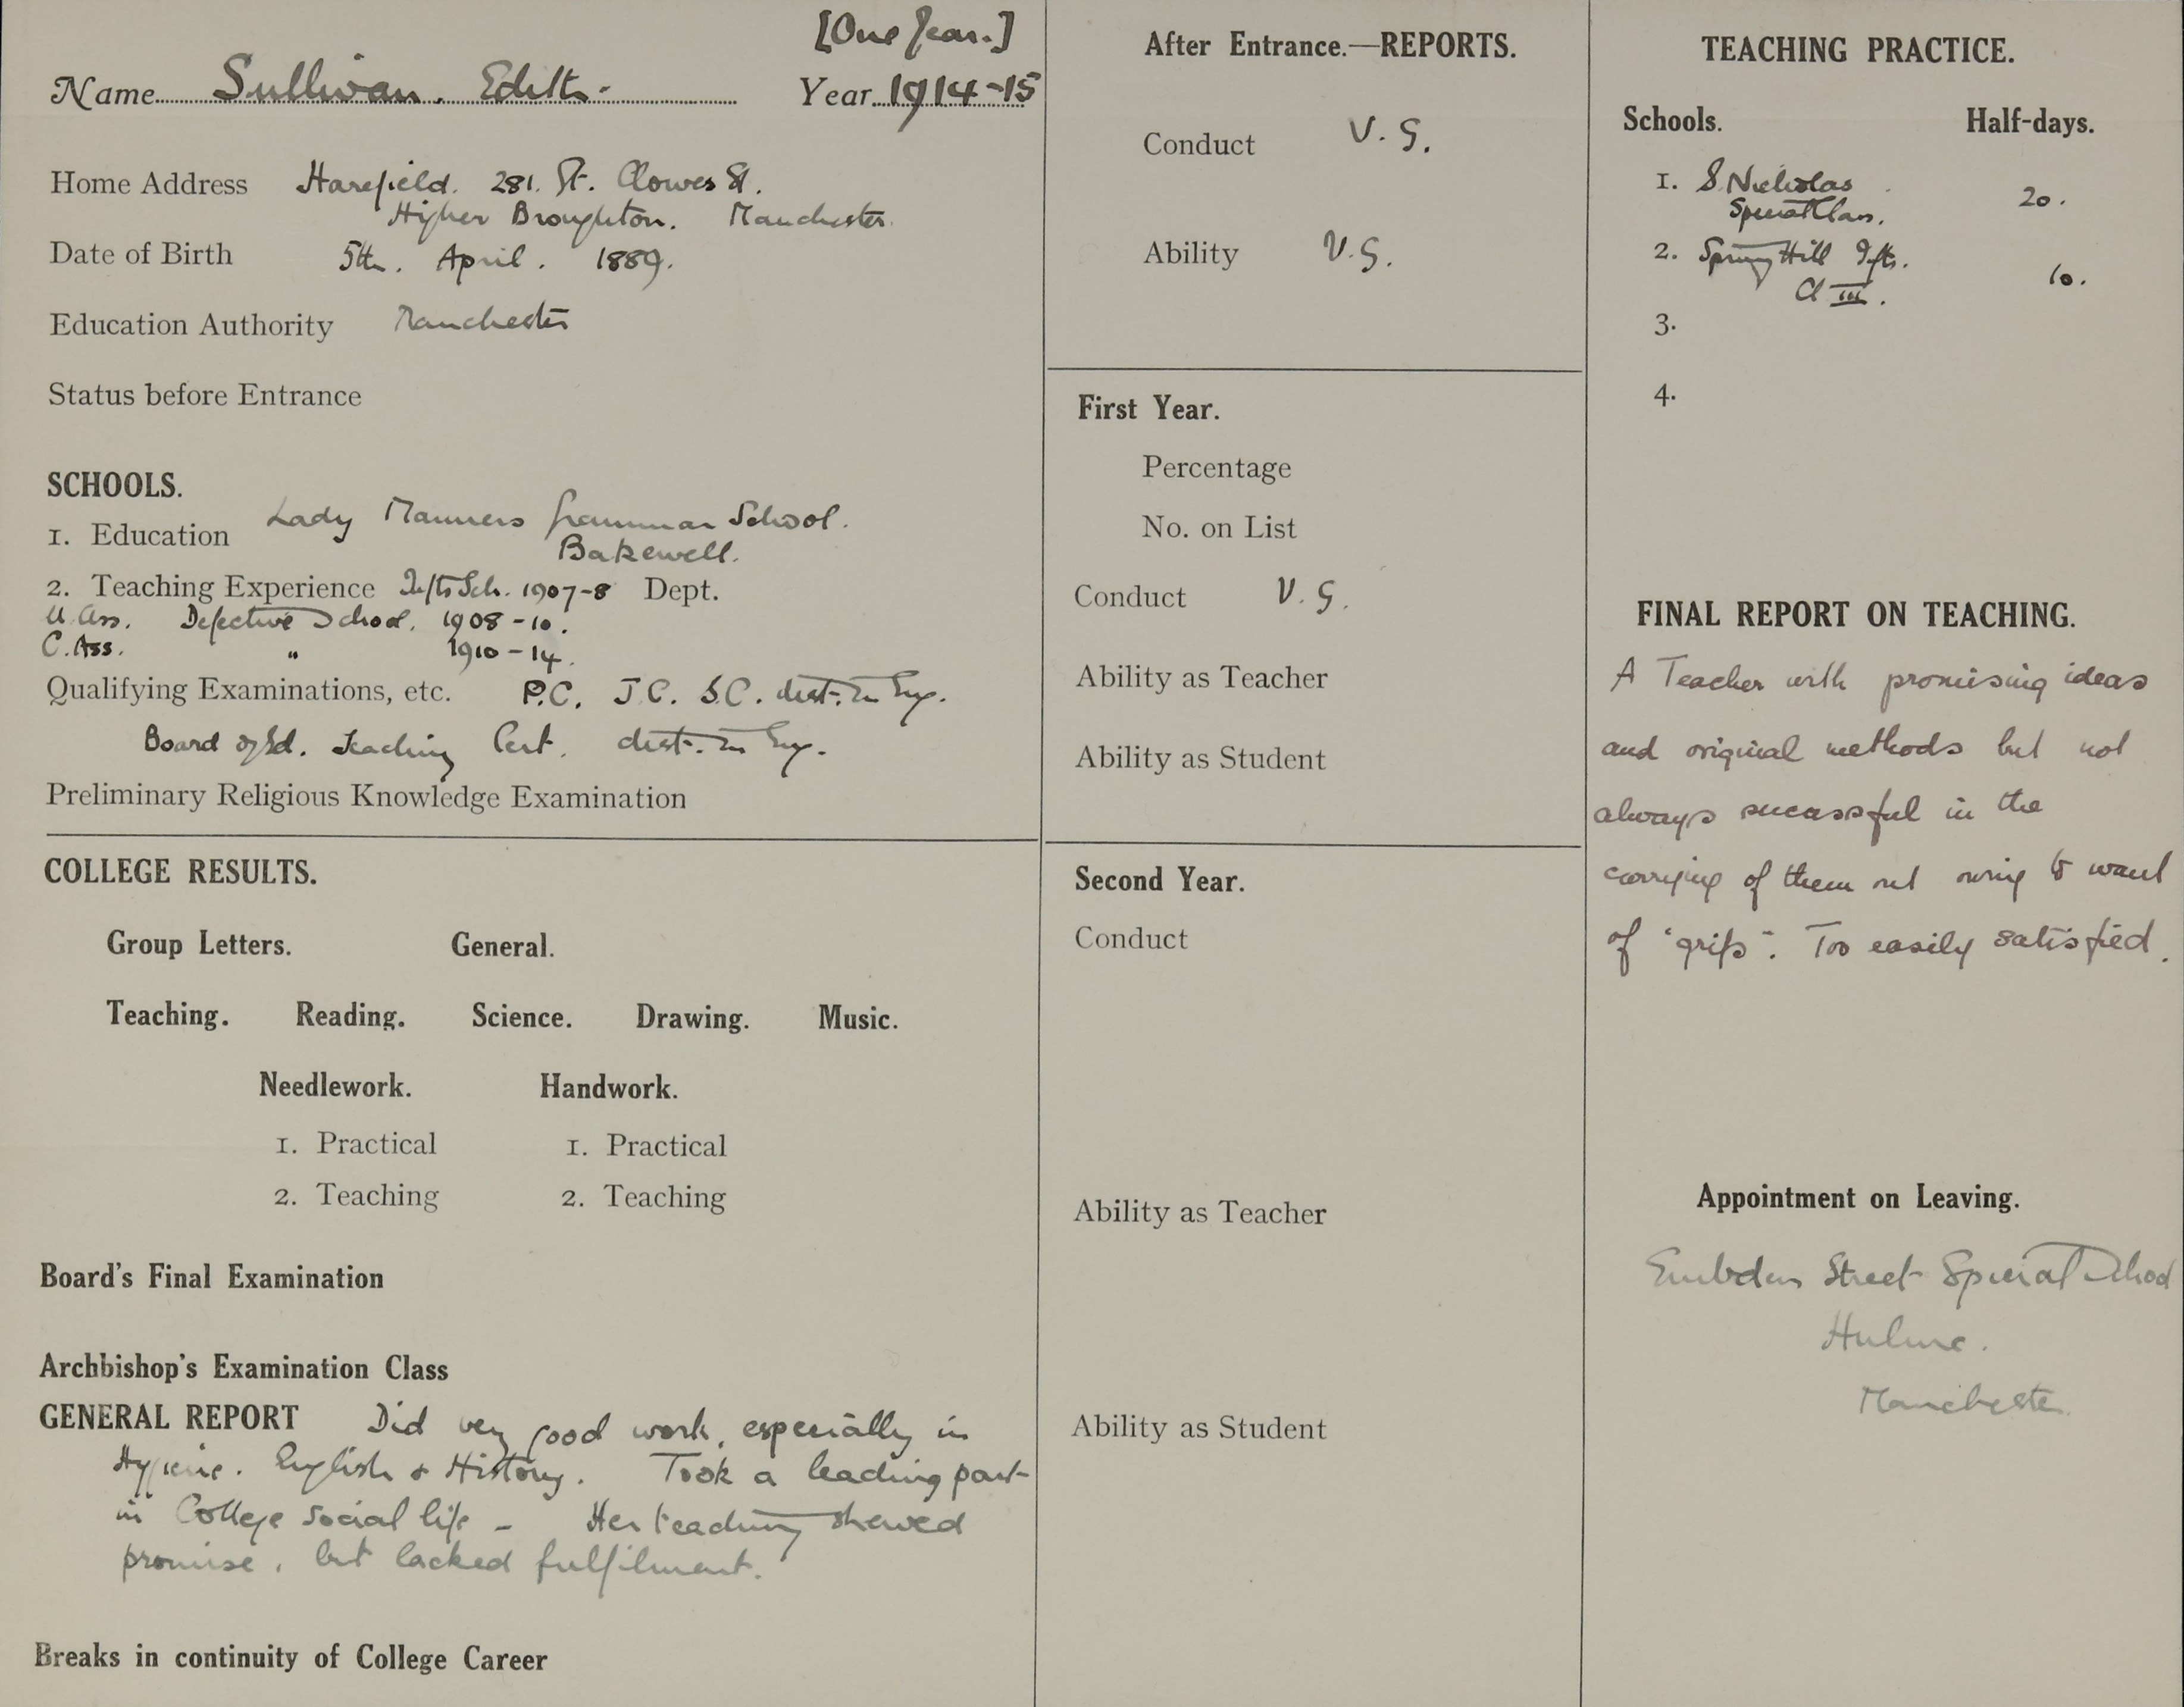 [One Year.]
Name Sullivan. Edith. Year 1914-15
Home Address Harefield. 281. Gt. Clowes St.
Higher Broughton. Manchester.
Date of Birth 5th. April. 1889.
Education Authority Manchester
Status before Entrance
SCHOOLS.
1. Education Lady Manners Grammar School.
Bakewell.
2. Teaching Experience Infts Sch. 1907-8 Dept.
U. Ass. Defective School. 1908-10.
C. Ass. " 1910-14.
Qualifying Examinations, etc. P.C. J.C. S.C. dist. in Eng.
Board of Ed. Teaching Cert. dist. in Eng.
Preliminary Religious Knowledge Examination
COLLEGE RESULTS.
Group Letters. General.
Teaching. Reading. Science. Drawing. Music.
Needlework. Handwork.
1. Practical 1. Practical
2. Teaching 2. Teaching
Board's Final Examination
Archbishop's Examination Class
GENERAL REPORT Did very good work, especially in
Hygiene. English & History. Took a leading part
in College social life - Her teaching shewed
promise, but lacked fulfilment.
Breaks in continuity of College Career
After Entrance.—REPORTS.
Conduct V.G.
Ability V.G.
First Year.
Percentage
No. on List
Conduct V.G.
Ability as Teacher
Ability as Student
Second Year.
Conduct
Ability as Teacher
Ability as Student
TEACHING PRACTICE.
Schools. Half-days.
1. S. Nicholas 20.
Special Class.
2. Spring Hill Infts. 10.
Cl III.
3.
4.
FINAL REPORT ON TEACHING.
A Teacher with promising ideas
and original methods but not
always sucessful in the
carrying of them out owing to want
of "grip". Too easily satisfied.
Appointment on Leaving.
Embden Street Special School
Hulme.
Manchester.